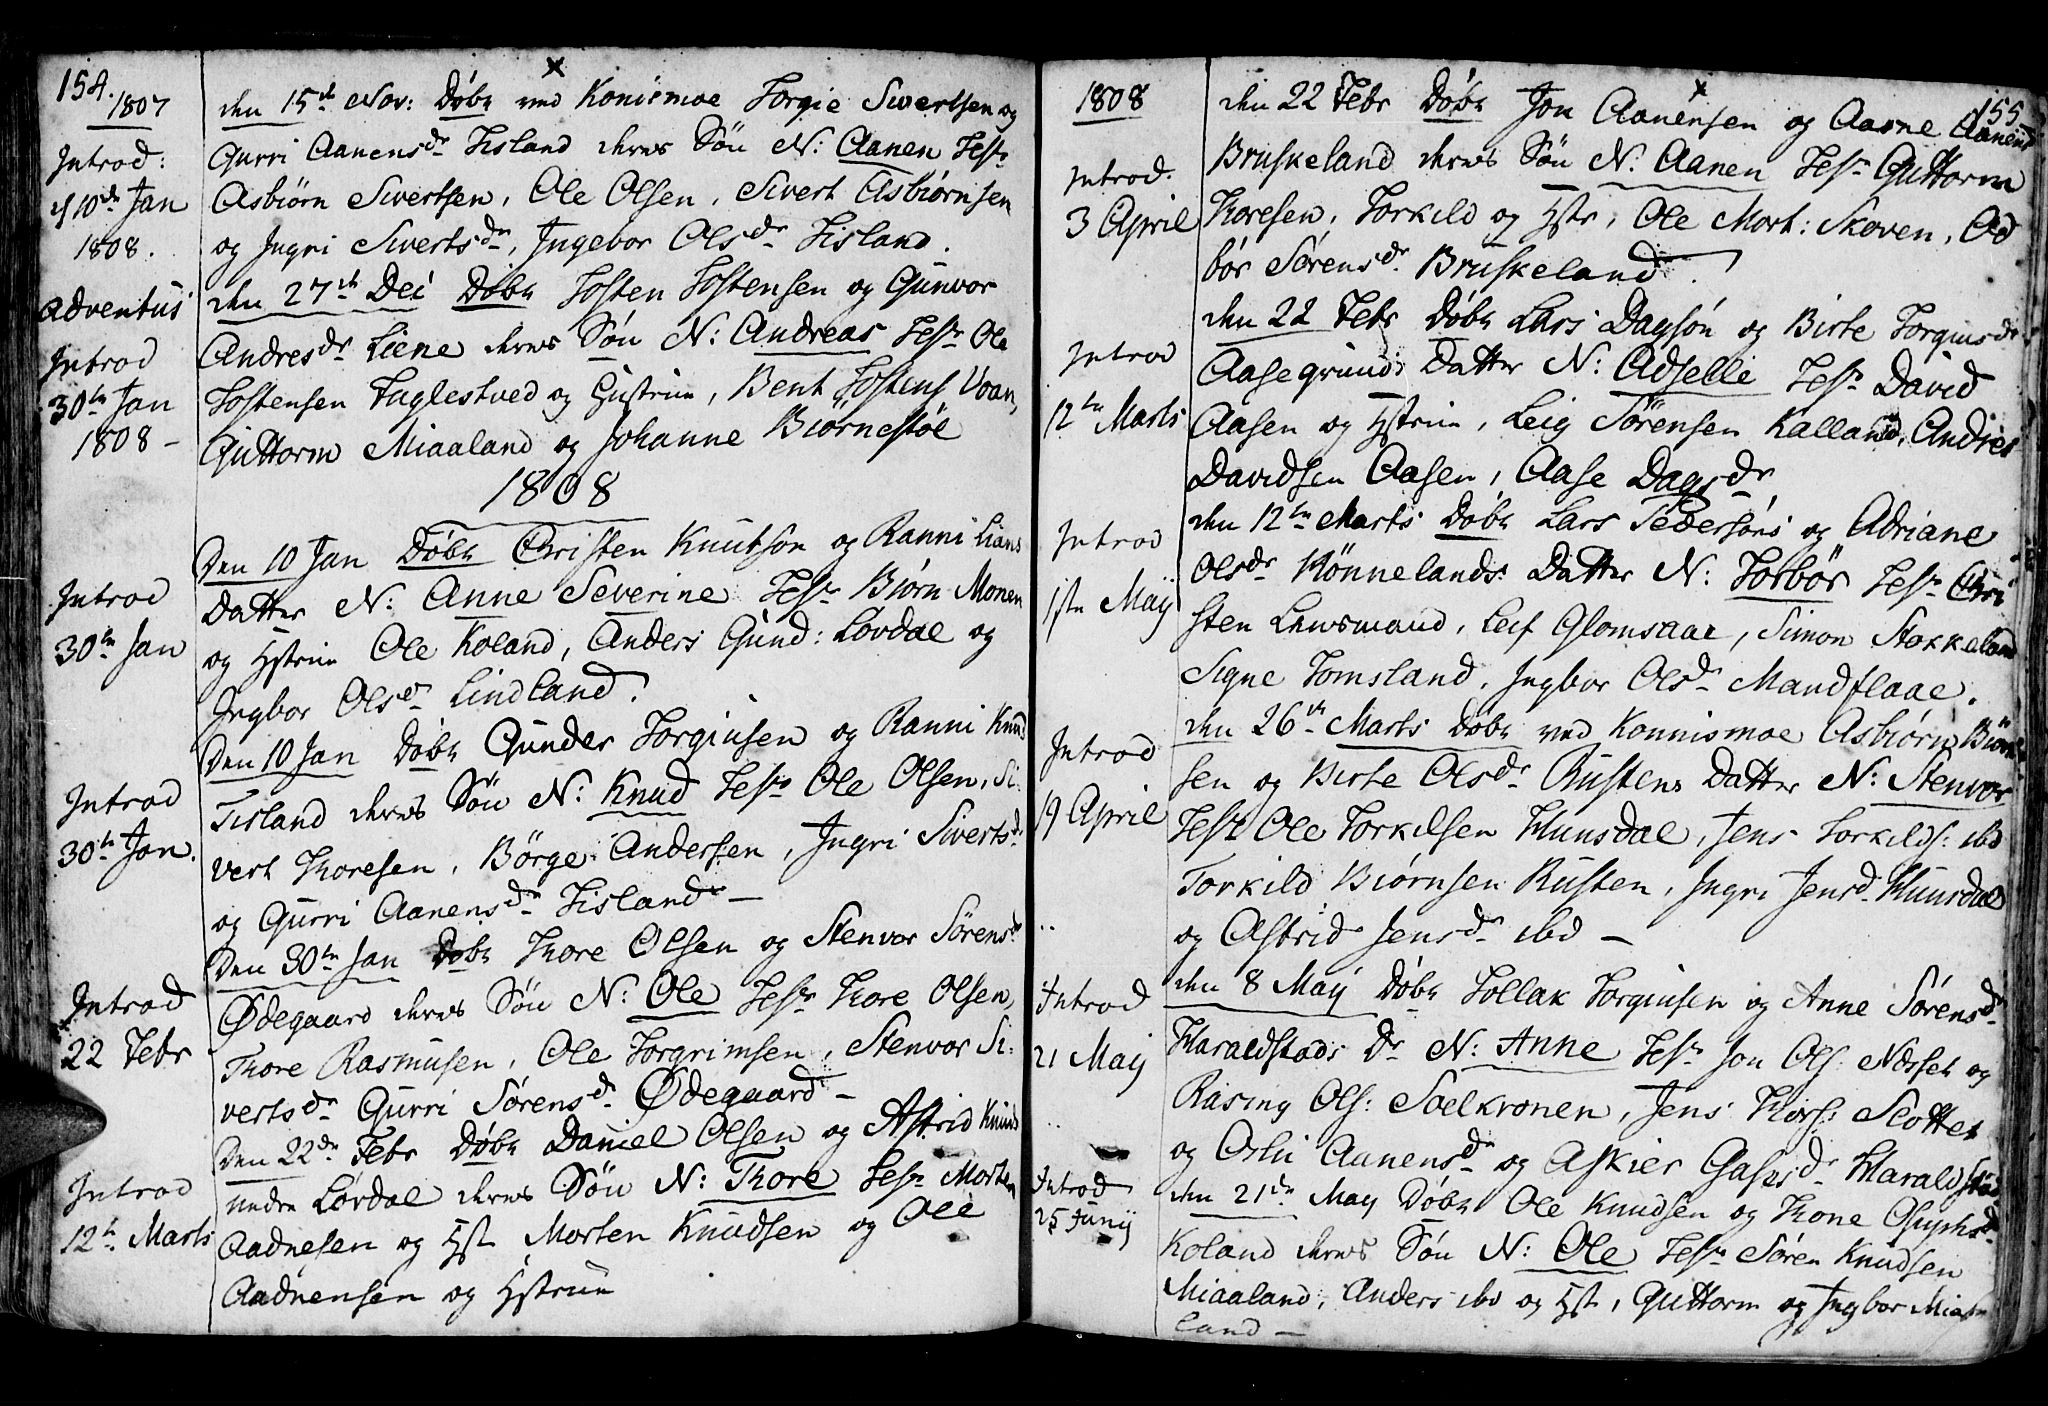 154.
1807
Introd:
d 10de Jan
1808.
Adventus
Introd
30te Jan
1808 –
Introd
30te Jan
Introd
30te Jan.
Introd
22 Febr
Introd
12te Marts
den 15de Nov: Døbt ved Konismoe Torgie Sivertsen og
Gurri Aanensdr Tisland deres Søn N: Aanen Test
Asbiørn Sivertsen, Ole Olsen, Sivert Asbiørnsen
og Ingri Sivertsdr, Ingebor Olsdr Tisland.
den 27de Dec Døbt Tosten Tostensen og Gunvor
Andresdr Liene deres Søn N: Andreas Test Ole
Tostensen Fuglestved og Hustrue, Bent Tostens Voan,
Guttorm Miaaland og Johanne Biørnestøl
1808
Den 10 Jan Døbt Christen Knutson og Ranni Lians
Datter N: Anne Severine Test Biørn Monen
og Hstrue Ole Koland, Anders Gund: Løvdal og
Ingbor Olsdr Lindland.
Den 10 Jan Døbt Gunder Torgiusen og Ranni Knud
Tisland deres Søn N: Knud Test Ole Olsen, Si:
vert Thoresen, Børge Andersen, Ingri Sivertsd.
og Gurri Aanensdr Tisland –
Den 30te Jan Døbt Thore Olsen og Stenvor Sørensdr
Ødegaard deres Søn N: Ole Test Thore Olsen,
Thore Rasmusen, Ole Torgrimsen, Stenvor Si:
vertsdr Gurri Sørensd. Ødegaard –
Den 22de Febr Døbt Daniel Olsen og Astrid Knuds
nedre Løvdal deres Søn N: Thore Test Morten
Aadnesen og Hst Morten Knudsen og Ole
Aadnensen og Hstrue
155
1808
Introd.
3 April
Introd
12te Marts
Introd
1ste Maij
Introd
19 April
Introd
21 Maij
Introd
25 Junij
den 22 Febr Døbt Jon Aanensen og Aasne Aanensd
Bruskeland deres Søn N. Aanen Test Guttorm
Thoresen, Torkild og Hstr, Ole Mort: Skoven, Od
bør Sørensdr. Bruskeland.
den 22 Febr Døbt Lars Dagsøn og Birte Torgiusdr
Aasegrund: Datter N: Adselle Test David
Aasen og Hstrue, Leig Sørensen Kalland, Andres
Davidsen Aasen, Aase Dagsdr
den 12te Marts Døbt Lars Pedersøns og Adriane
Olsdr Hønnelands: Datter N: Torbør Test Chri
sten Lensmand, Leif Glomsaae, Simon Stokkeland
Signe Tomsland, Ingbor Olsdr Mandflaae.
den 26de Marts Døbt ved Konnismoe Asbiørn Biørn
sen og Birte Olsdr Rustens Datter N: Stenvor
Test Ole Torkilsen Hunsdal, Jens Torkilds: ibd
Torkild Biørnsen Rusten, Ingri Jensd. Hunsdal
og Astrid Jensdr ibd –
den 8 Maij Døbt Tollak Torgiusen og Anne Sørensdr
Haraldstads Dr N: Anne Test Jon Ols: Næset og
Rasmg Ols: Soelkronen, Jens Thors: Scottet
og Osli Aanensdr og Askier Gasesdr Haraldstad
den 21de May Døbt Ole Knudsen og Thone Gluphsd.
Koland deres Søn N: Ole Test Søren Knudsen
Miaaland, Anders ibd og Hst, Guttorm og Ingbor Miaa
land –